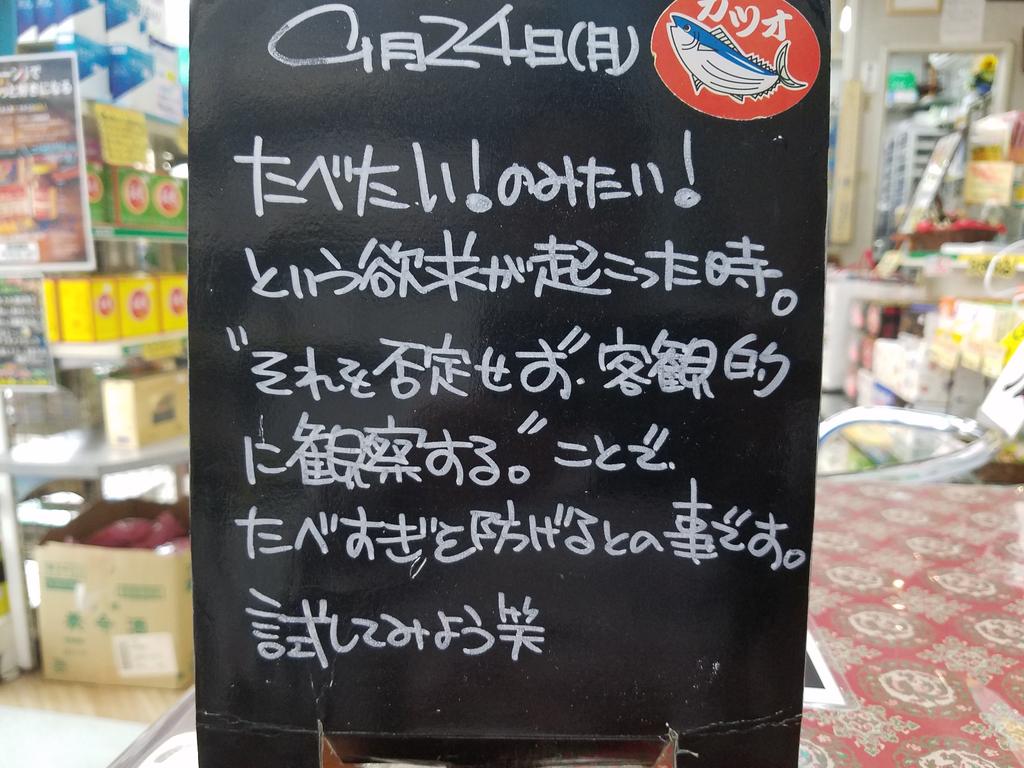 9月24日(月)
カツオ
たべたい!のみたい!
という欲求が起こった時。
"それを否定せず"客観的
に観察する。"ことで
たべすぎを防げるとの事です。
試してみよう笑